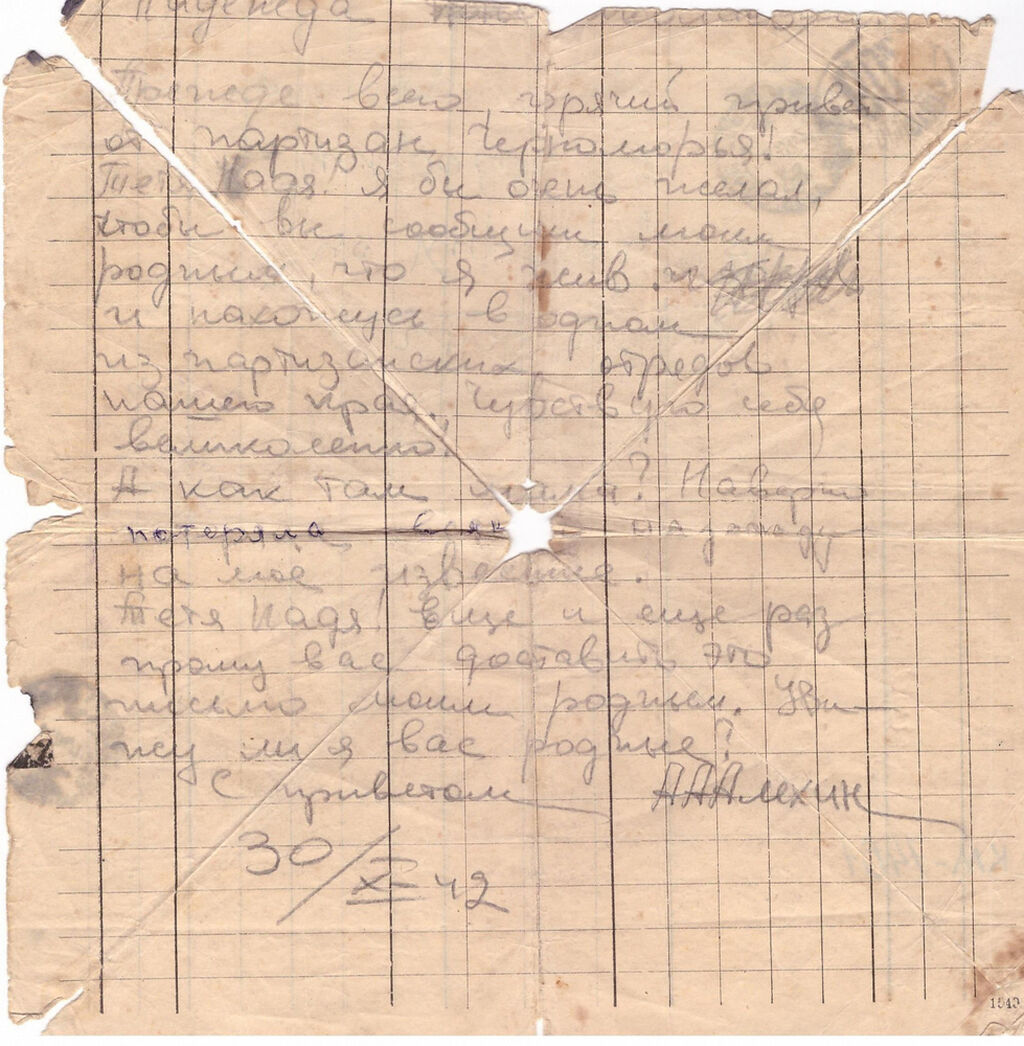 Надежда
Прежде всего горячий привет
от партизан Черноморья!
Тетя Надя! Я бы очень желал,
чтобы вы сообщили моим
родным, что я жив и
и нахожусь в одном
из партизанских отредов
нашего края. Чувствую себе
великолепно!
А как там мама? Наверно
потеряла всяк надежду
на мое известие.
Тетя Надя! Еще и еще раз
прошу вас доставить это
письмо моим родным. Уви-
жу ли я вас родные?
С приветом ААAлехин
30/XI 42
1940